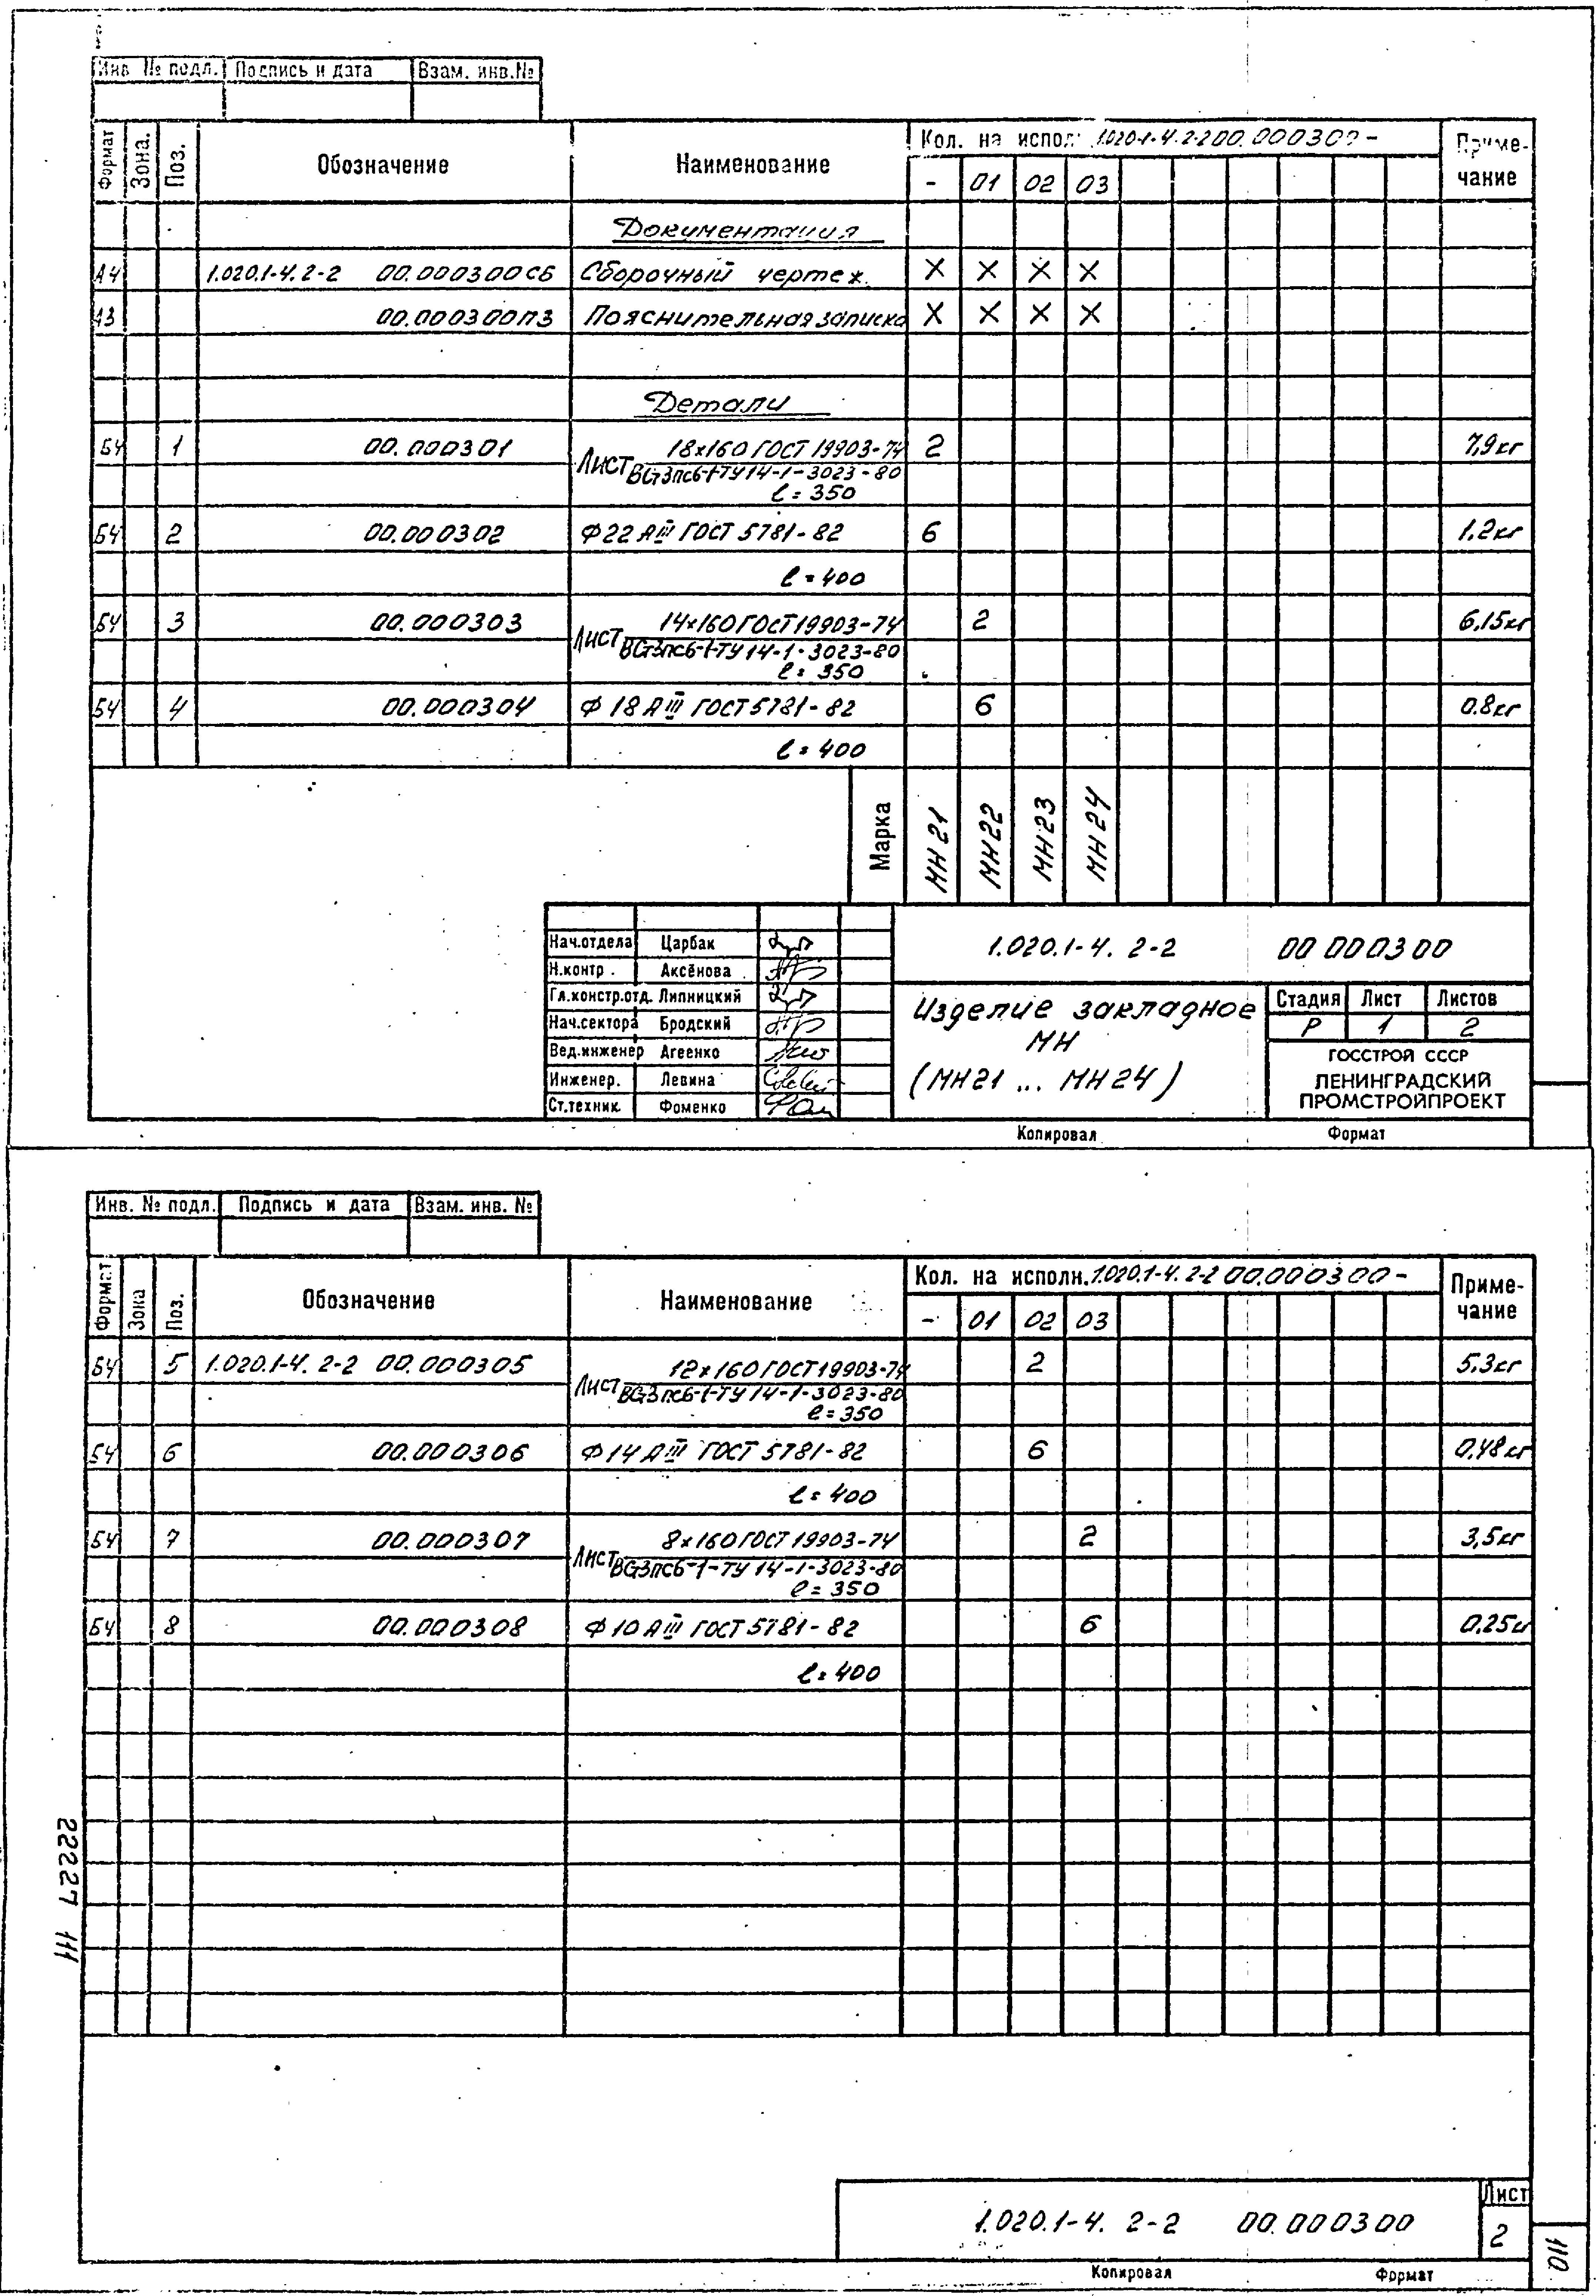 Инв № подл. Подпись и дата Взам. инв.№
Формат Зона. Поз. Обозначение Наименование Кол. на испол: 1.020-1-4.2-2 00.000300- Приме-
чание
- 01 02 03
Документация
А4 1.020.1-4.2-2 00.000300СБ Сборочный чертеж. X X X X
А3 00.000300ПЗ Пояснительная записка X X X X
Детали
БЧ 1 00.000301 Лист 18х160 ГОСТ 19903-74 2 7,9кг
ВСт3пс6-1-ТУ14-1-3023-80
ℓ=350
БЧ 2 00.000302 Ф22 АIII ГОСТ 5781-82 6 1.2кг
ℓ=400
БЧ 3 00.000303 Лист 14х160 ГОСТ 19903-74 2 6,15кг
ВСт3пс6-1-ТУ 14-1-3023-80
ℓ=350
БЧ 4 00.000304 Ф 18 АIII ГОСТ 5781-82 6 0.8кг
ℓ=400
Марка МН21 МН22 МН23 МН24
Нач.отдела Царбак
Н.контр. Аксёнова
Гл.констр.отд. Липницкий
Нач.сектора Бродский
Вед.инженер Агеенко
Инженер. Левина
Ст.техник. Фоменко
1.020.1-4. 2-2 00 000300
Изделие закладное
МН
(МН21 ... МН24)
Стадия Лист Листов
Р 1 2
ГОССТРОЙ СССР
ЛЕНИНГРАДСКИЙ
ПРОМСТРОЙПРОЕКТ
Копировал Формат
Инв. № подл. Подпись и дата Взам. инв. №
Формат Зона Поз. Обозначение Наименование Кол. на исполн. 1.020.1-4. 2-2 00.000300- Приме-
чание
- 01 02 03
БЧ 5 1.020.1-4. 2-2 00.000305 Лист 12х160 ГОСТ 19903-74 2 5,3кг
ВСт3пс6-1-ТУ 14-1-3023-80
ℓ=350
БЧ 6 00.000306 Ф14 АIII ГОСТ 5781-82 6 0,48кг
ℓ=400
БЧ 7 00.000307 Лист 8х160 ГОСТ 19903-74 2 3,5кг
ВСт3пс6-1-ТУ 14-1-3023-80
ℓ=350
БЧ 8 00.000308 Ф10 АIII ГОСТ 5781-82 6 0,25кг
ℓ=400
22227 111
1.020.1-4. 2-2 00.000300
Лист
2
110
Копировал Формат